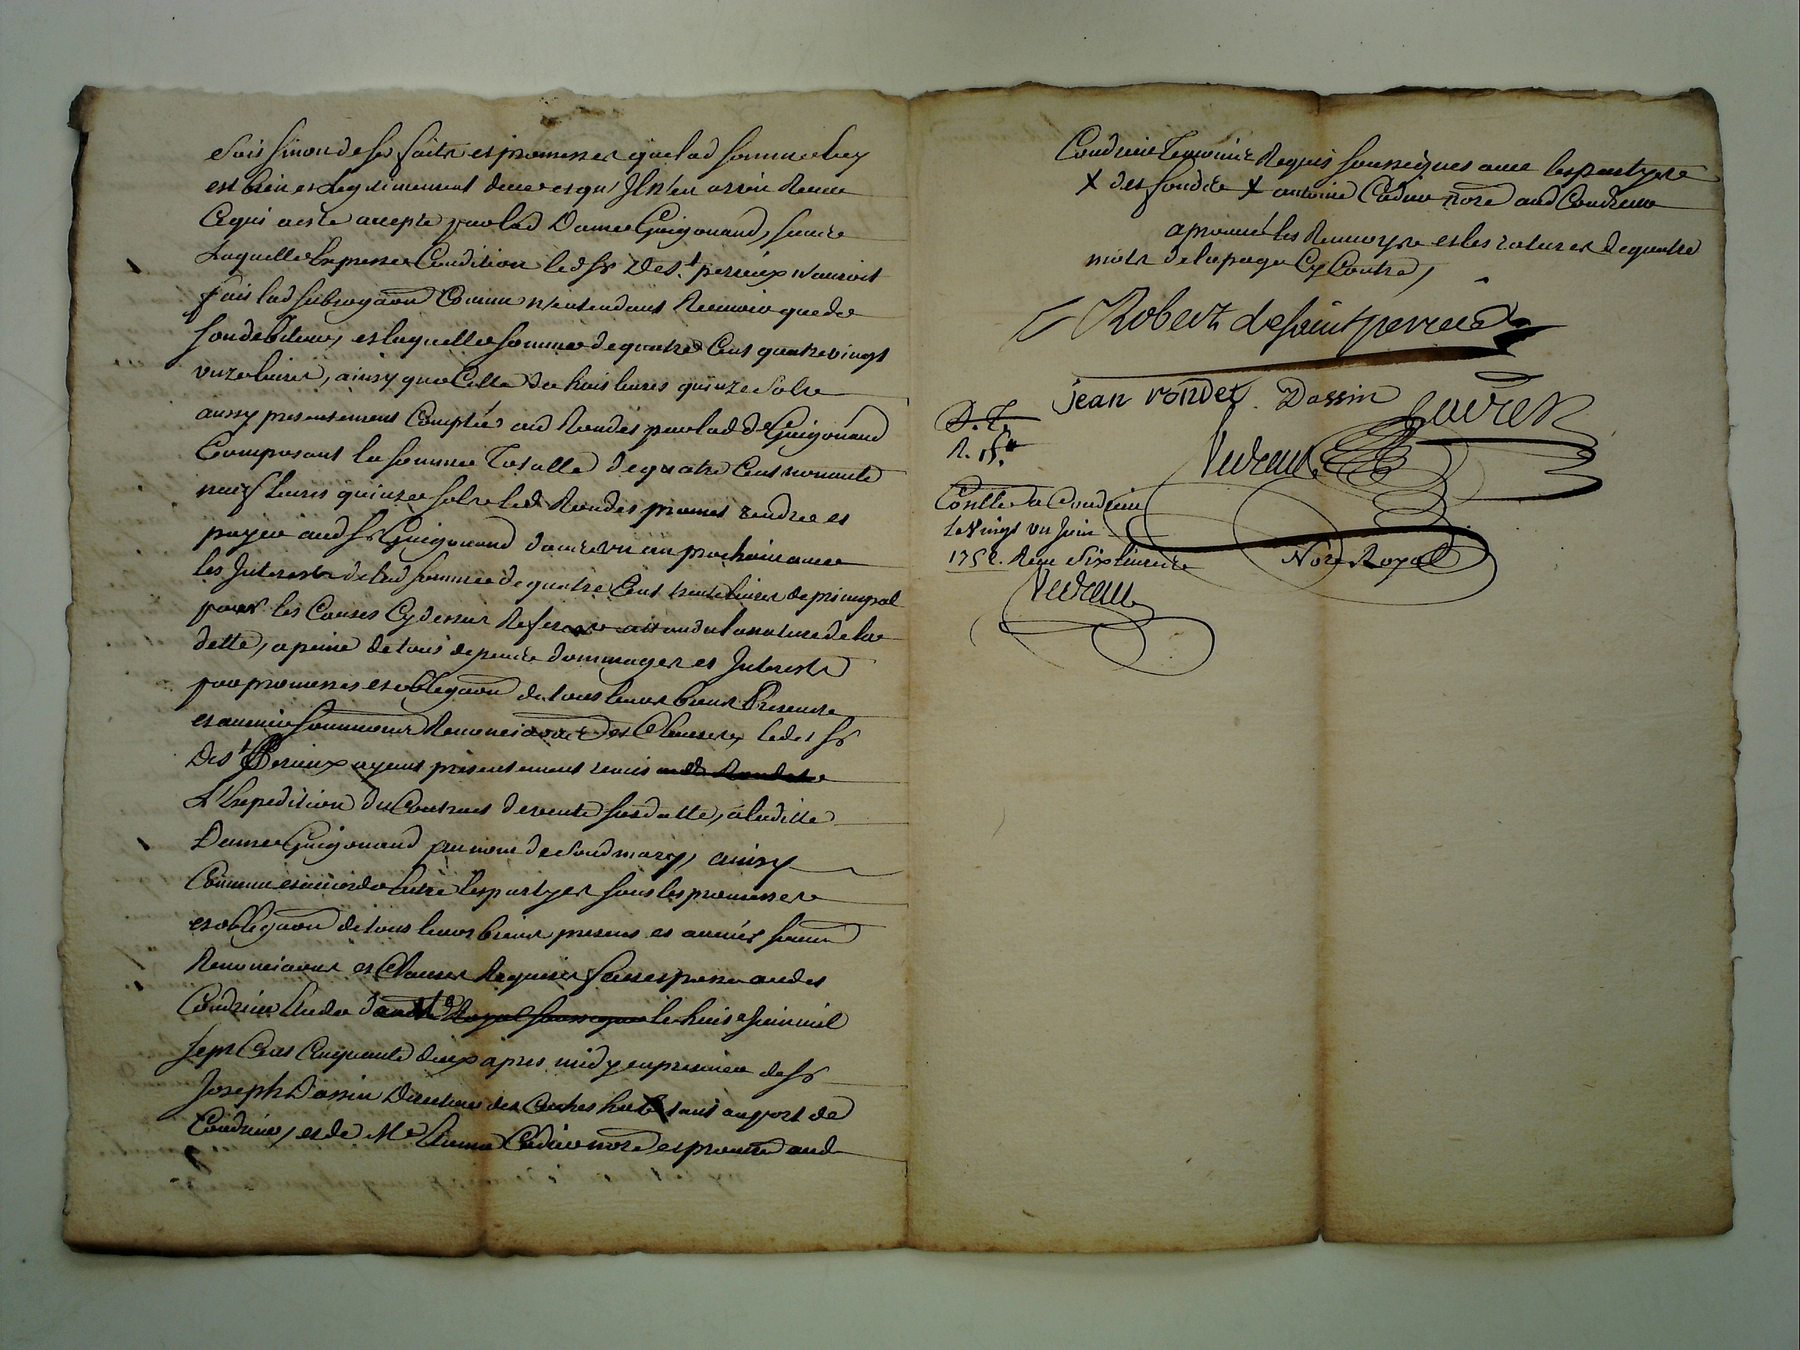 sois sinon de ses faits et promesses que lad somme luy
est bien et legitimement deue et qu'Il n'en a rien Receu
Ce qui a este accepté par lad Dame Guigouand, sans
Laquelle Expresse Condition led Sr De St perieux n'auroit
fais lad subrogaõn Comme n'entendant Recevoir que de
son debiteur, et laquelle somme de quatre Cent quatre vingt
unze livres, ainsy que Celle de huis livres quinze sols
aussy presentement Comptée aud Rondet par lad De Guigouand
Composant la somme Totalle de quatre Cent nonante
neuf livres quinze sols led Rondet promet rendre et
payer aud Sr Guigouand dans un an prochain avec
les Interests de lad somme de quatre Cent trente livres de principal
pour les Causes Cy dessus Referées attandu la nature de la
dette, a peine de tous depends dommages et Interests
par promesses et obligaõn de tous leurs biens Presents
et avenir soumissions Renonciaõns et Clauses, led Sr
De St Perieux ayant presentement remis aud Rondet
L'Expedition du Contract de vente susdatte, a laditte
Dame Guigouand au nom de sond mary, ainsy
Comme est accordé Entre les partyes sous les promesses
et obligaõn de tous leurs biens presens et avenir soum
Renonciaõns et Clauses Requises fais et passé aud
Condrieu Etude d Royal soussigné le huis Juin mil
sept Cens Cinquante deux apres midy en presence de Sr
Joseph Dassin Directeur des Coches habitant au port de
Condrieu, et de Me Cadier nore et procureur aud
Condrieu Temoins Requis soussignes avec les partyes
X des fondée X antoine Cadier nore aud Condrieu
aprouvé les Renvoys et les ratures de quatre
mots de la page Cy Contre,
Robert de saint perieux
jean rondet Dassin
D. T.
R. 15s
Vedeau
Conllé a Condrieu
le Vingt un Juin
1752. Reçu Six livres
Nore Royal
Vedeau